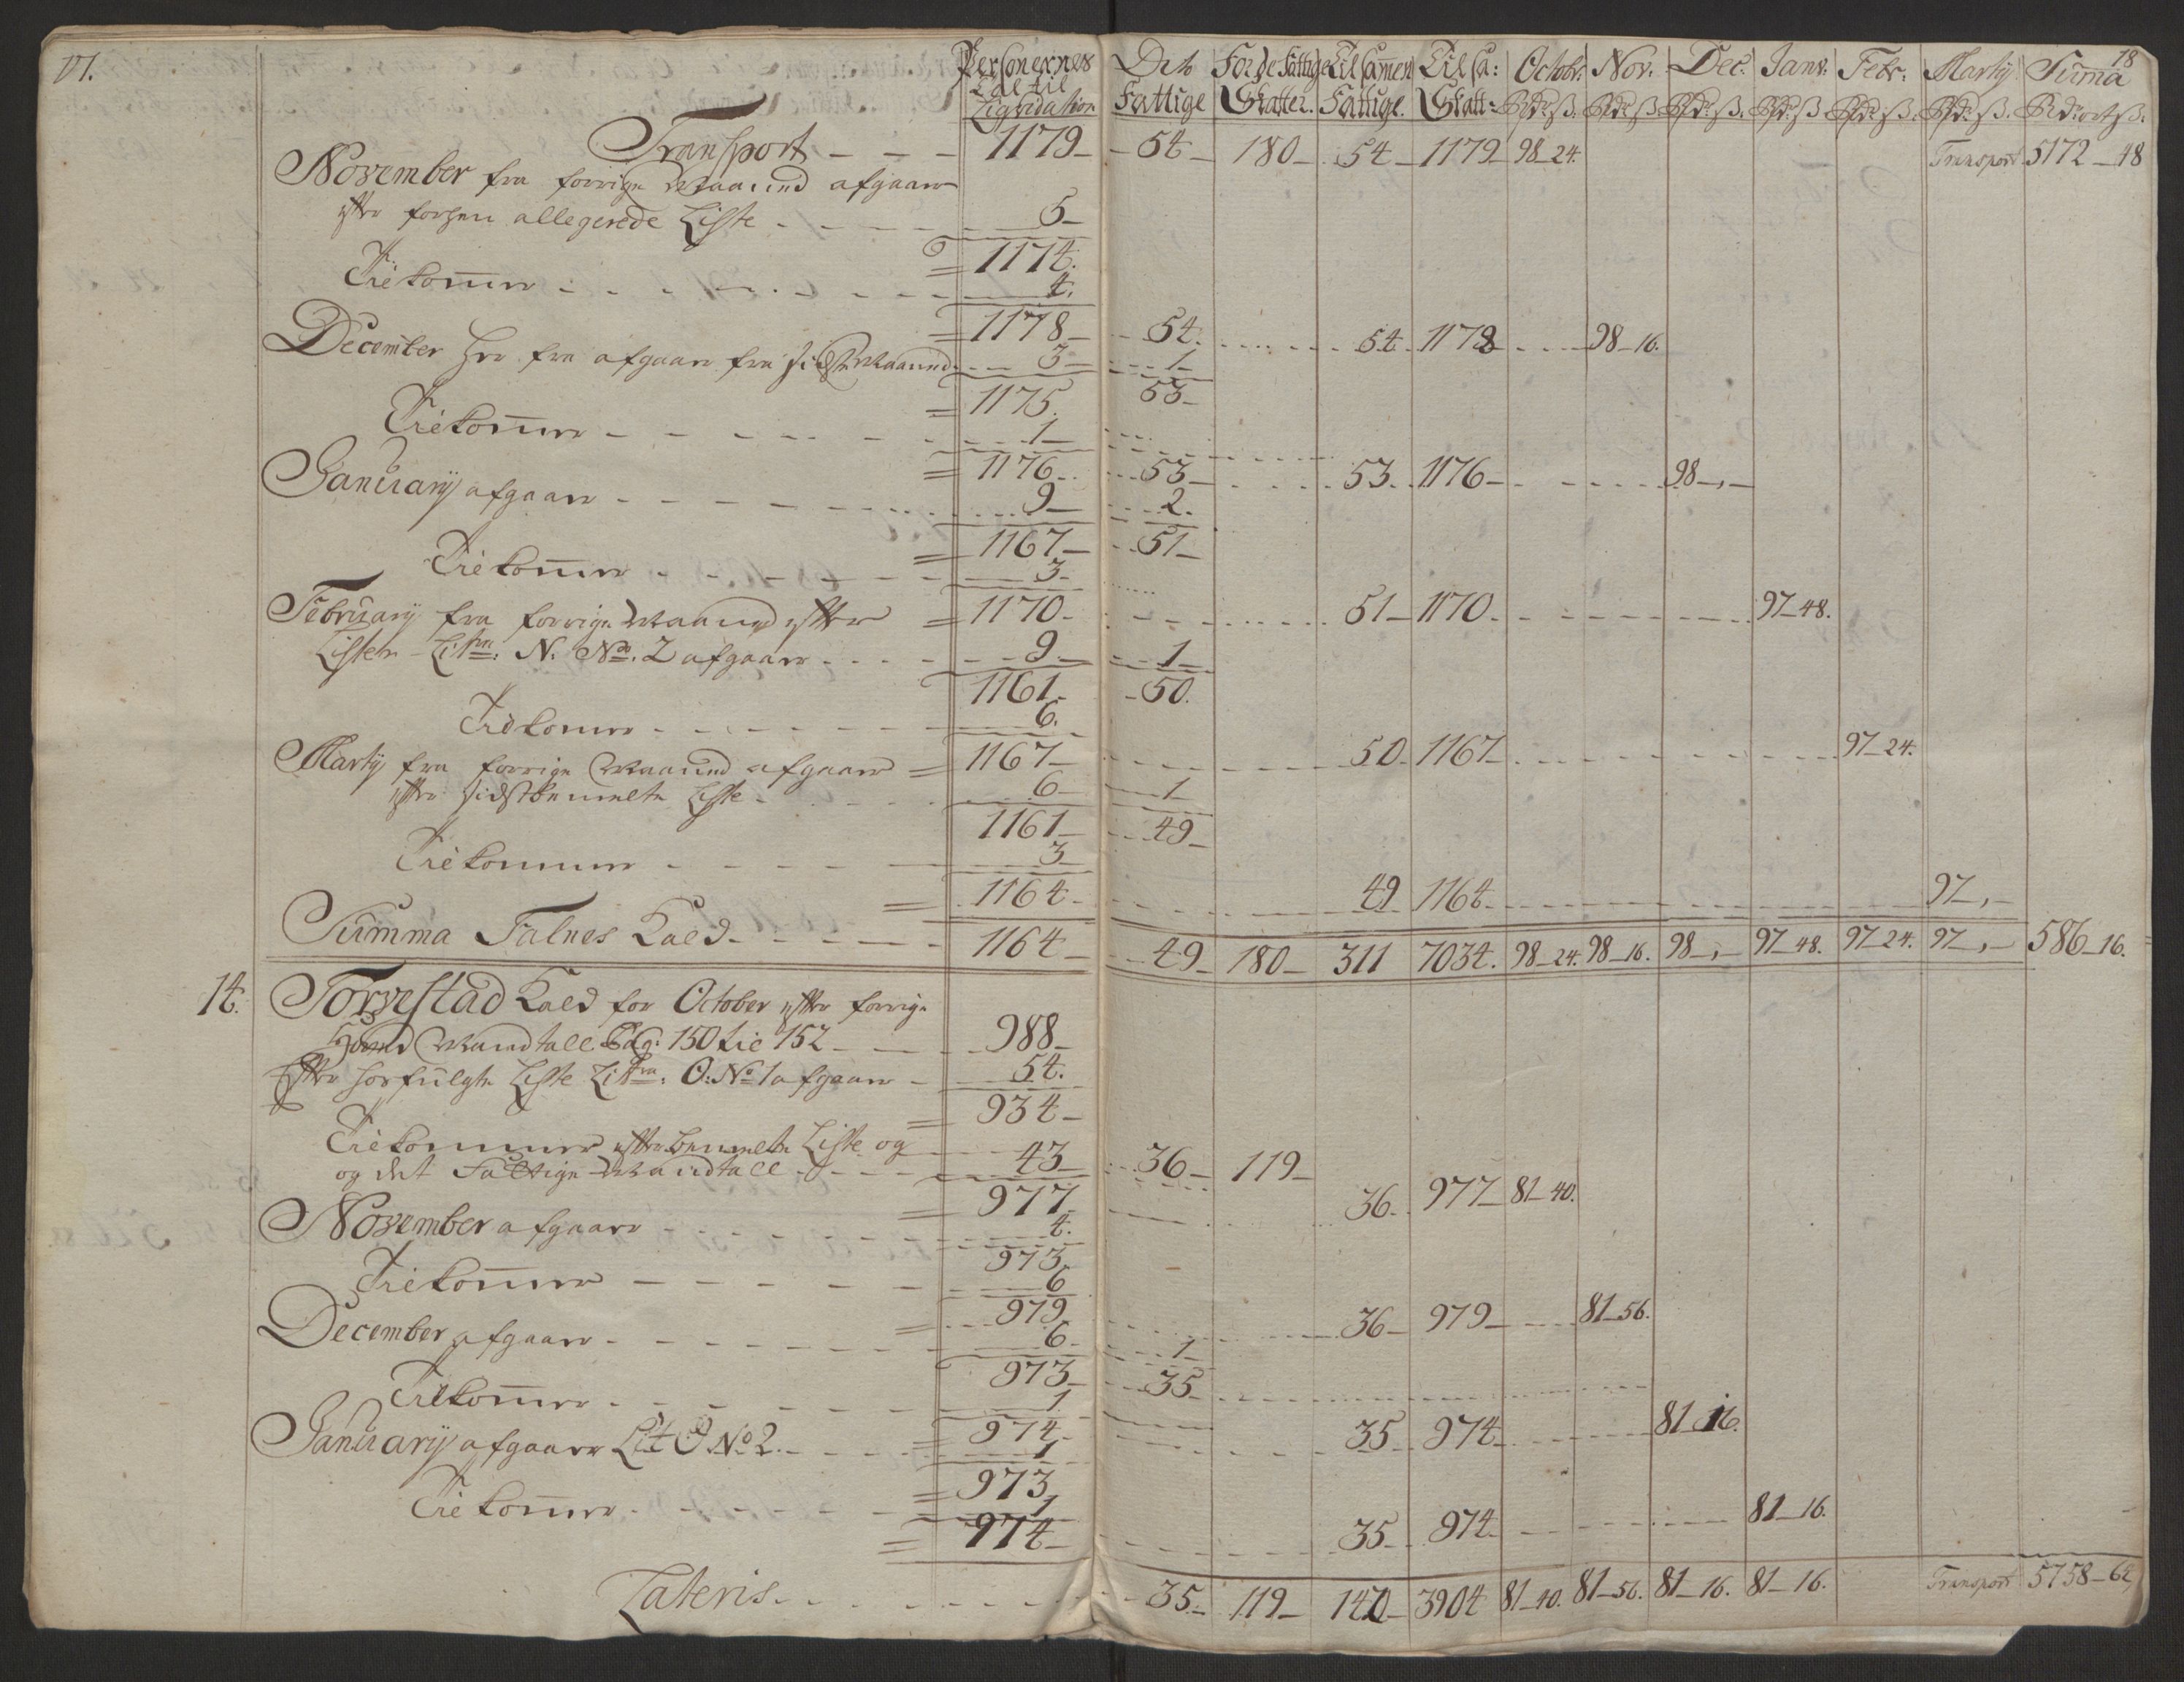 17.
18
Personernes Tal til Liqvidation | Dito Fattige | For de Fattige Skatter. | Tilsamen Fattige. | Til sa: Skatt: | Octobr: Rdr ß. | Nov. Rdr ß. | Dec: Rdr ß. | Janr: Rdr ß | Febr: Rdr ß. | Martij Rdr ß. | Summa Rdr ort ß.
Transport - - - 1179 - 54 - 180 - 54 - 1179 98 - 24. Transport 5172 - 48
November fra forrige Maaned afgaar
efter forhen allegerede Liste - - - - 5 -
= 1174.
Tilkommer - - - - 4.
= 1178 - 54. 54. 1178 - 98 - 16.
December her fra afgaar fra sidste Maaned - 3 - 1 -
= 1175. 53 -
Tilkommer - - - - 1 -
= 1176 - 53 - 53. 1176 - 98 - , -
Januarij afgaar - - - - 9 - 2.
= 1167 - 51 -
Tilkommer - - - - 3 -
= 1170 - 51 - 1170 - 97 - 48.
Februarij fra forrige Maaned efter
Listen Litra: N. No. 2 afgaar - - - 9 - 1 -
1161 - 50.
Tilkommer - - - - 6.
= 1167 - 50 - 1167 - 97 - 24.
Martij fra forrige Maaned afgaar
efter sidstbemelte Liste - - - 6 - 1 -
1161 - 49 -
Tilkommer - - - - 3 -
= 1164 - 49 1164 - 97 - , -
Summa Falnes Kald - - - 1164 - 49 - 180 - 311 7034. 98 - 24. 98 - 16. 98 - , - 97 - 48. 97 - 24. 97 - , - 586 - 16.
14. Torvestad Kald for October efter forrige
Mandtall Pag: 150 til 152 - - 988 -
Efter hosfulgte Liste Litra: O: No 1 afgaar - 54.
= 934 -
Tilkommer efter bemelte Liste og
og det Fattige Mandtall - - - 43 - 36 - 119 -
= 977 - 36 - 977 - 81 - 40.
November afgaar - - - - 4.
973.
Tilkommer - - - - 6
= 979 - 36 - 979 - 81 - 56.
December afgaar - - - - 6 - 1 -
973 - 35 -
Tilkommer - - - - 1
= 974 - 35 974 - 81 - 16.
Januarij afgaar Lit O No 2. - - - 1
= 973
Tilkommer - - - - 1
= 974 - 35 - 974 - 81 - 16.
Lateris - - - - 35 - 119 - 140 - 3904 81 - 40. 81 - 56. 81 - 16. 81 - 16. Transport 5758 - 64